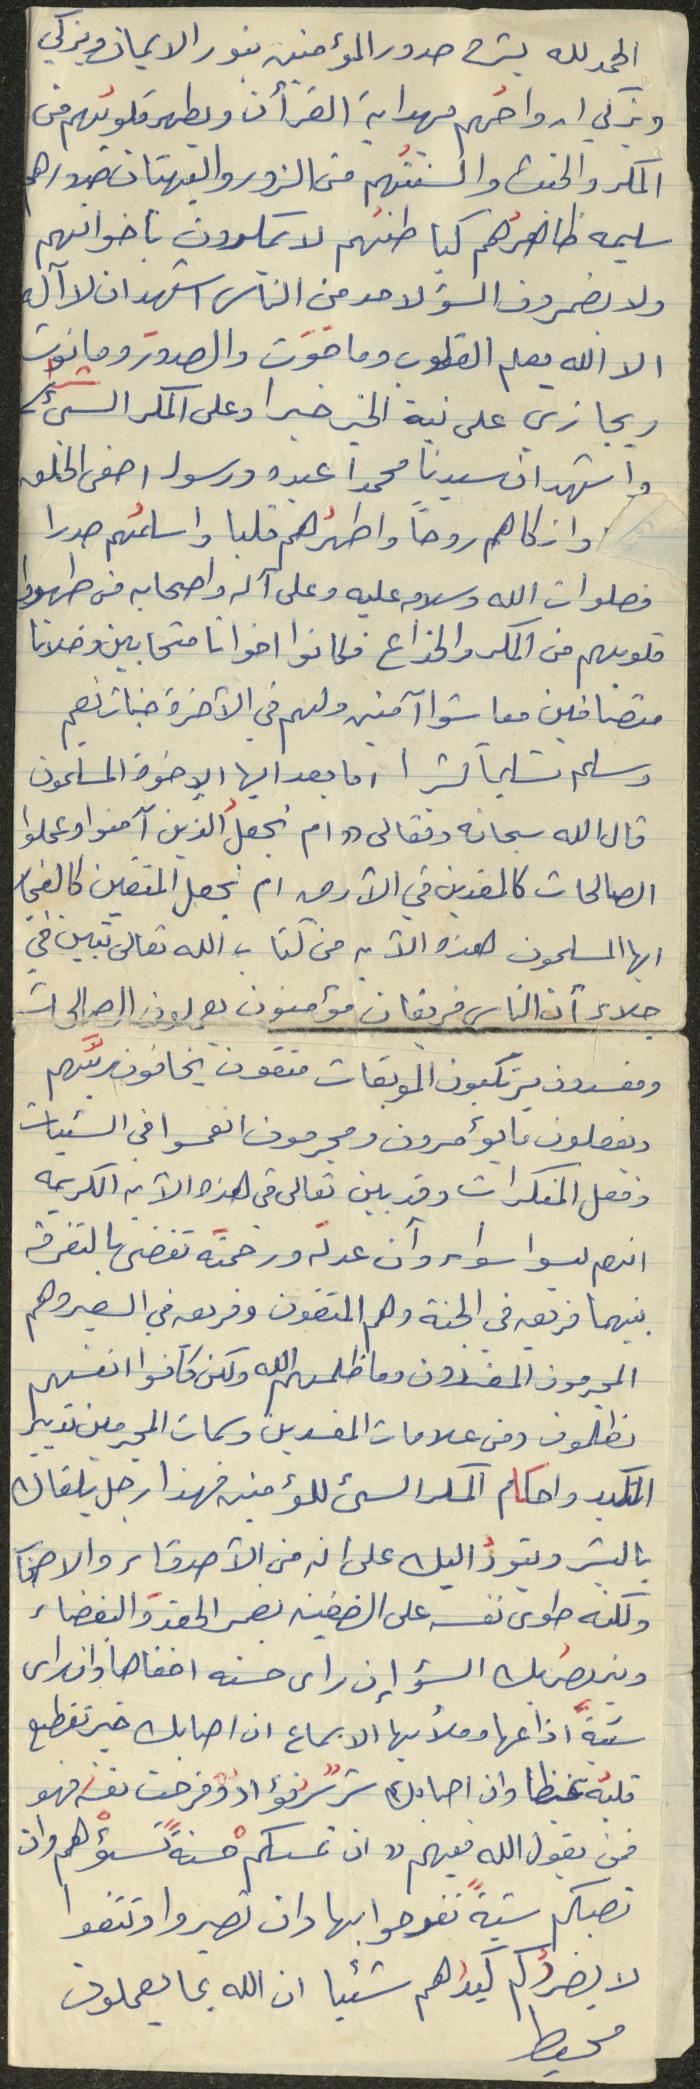 الحمد لله يشرح صدور المؤمنين بنور الايمان ويزكي
ويزكي ارواحهم بهداية القرآن ويطهر قلوبهم من
المكر والخبث والسنتهم من الزور والبهتان صدورهم
سليمه ظاهرهم كباطنهم لا يمكرون بأخوانهم
ولا يضمرون السؤ لاحد من الناس اشهد ان لا آله
الا الله يعلم القلوب وما حوت والصدور وما نوت
ويجازي على نية الخير خيرا وعلى المكر السيئ شرا
واشهد ان سيدنا محمدا عبده ورسوله اصفى الخلق
وازكاهم روحاً واطهرهم قلبا واسلمهم صدرا
فصلوات الله وسلامه عليه وعلى آله واصحابه من طهروا
قلوبهم من المكر والخداع فكانوا اخوانا متحابين وخلانا
متصافين فعاشوا آمنين ولهم في الآخرة جنات نعيم
وسلم تسليماً كثيرا اما بعد ايها الاخوة المسلمون
قال الله سبحانه وتعالى «ام نجعل الذين آمنوا وعملوا
الصالحات كالمفسدين في الأرض ام نجعل المتقين كالفجار
ايها المسلمون هذه الآيه من كتاب الله تعالى تبين في
جلاء أن الناس فريقان مؤمنون يعملون الصالحات
ومفسدون يرتكبون الموبقات متقون يخافون ربهم
ويفعلون ما يؤمرون ومجرمون انغمسوا في السيئات
وفعل المنكرات وقد بين تعالى في هذه الآيه الكريمه
انهم ليسوا سواء وأن عدله ورحمته تقضي بالتفرقه
بينهما فريق في الجنة وهم المتقون وفريق في السعير وهم
المجرمون المفسدون وما ظلمهم الله ولكن كانوا انفسهم
يظلمون ومن علامات المفسدين وسمات المجرمين تدبير
الكيد واحكام المكر السيئ للمؤمنين فهذا رجل يلقاك
بالبشر ويتودد اليك على انه من الأصدقاء والاصحاب
ولكنه طوى نفسه على الضغينه يضمر الحقد والبغضاء
ويتربص بك السؤ إن رأى حسنه اخفاها وان رأى
سيئةً اذاعها وملأ بها الاسماع ان اصابك خير تقطع
قلبه غيظا وان اصابك شر سر فؤاده وفرحت نفسه فهو
ممن يقول الله فيهم «ان تمسسكم حسنةً تسؤهم وان
تصبكم سيئةً يفرحوا بها وان تصبروا وتتقوا
لا يضركم كيدهم شيئا ان الله بما يعملون
محيط